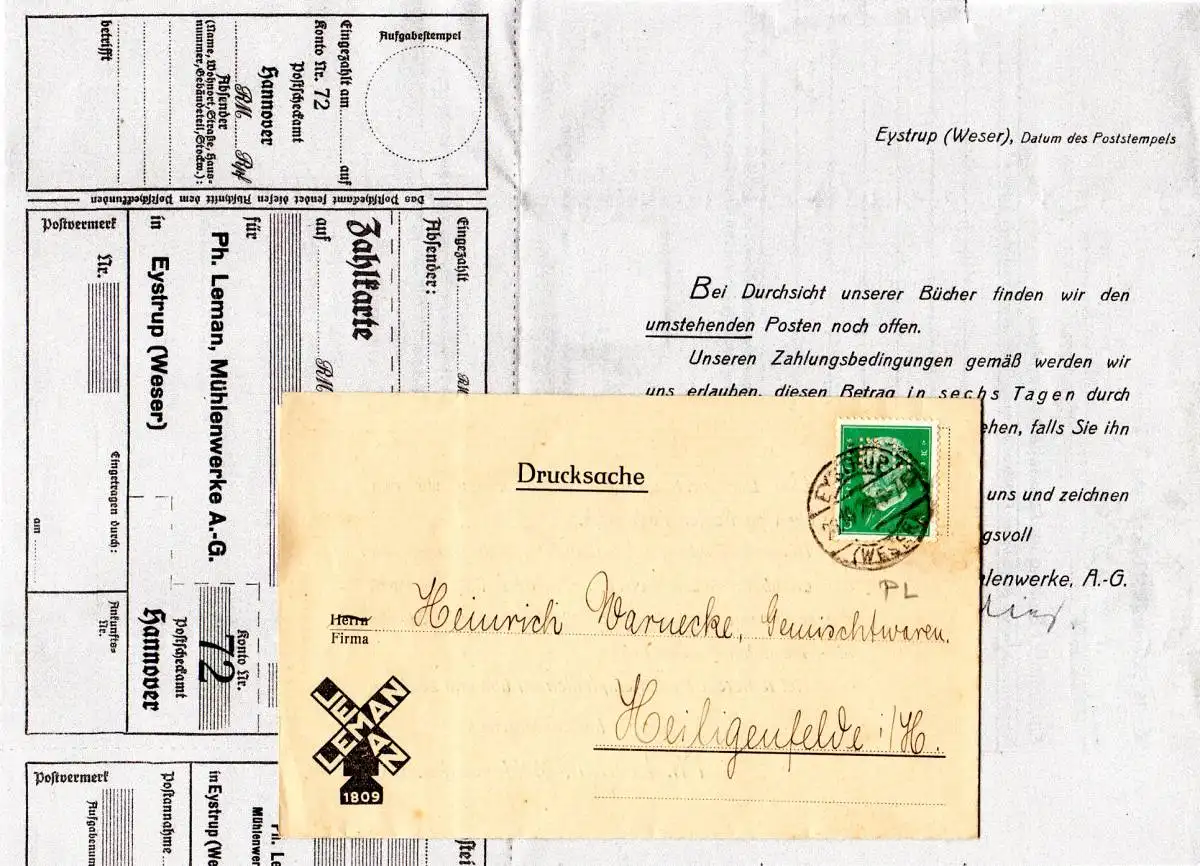 Aufgabestempel
Eingezahlt am
auf
Konto Nr. 72
Postscheckamt
Hannover
RM Rpf
Absender
(Name, Wohnort, Straße, Haus-
nummer, Gebäudeteil, Stockw.):
betrifft
Das Postscheckamt sendet diesen Abschnitt dem Postscheckkunden
Eingezahlt
RM
Absender:
Zahlkarte
auf
RM
für
Ph. Leman, Mühlenwerke A.-G.
in Eystrup (Weser)
Konto Nr.
72
Postscheckamt
Hannover
Postvermerk
Nr.
Eingetragen durch:
am
Ankunfts-
Nr.
Postvermerk
Aufgabenum
Postannahme
in Eystrup (We
Mühlenwer
Ph. Leman
Eystrup (Weser), Datum des Poststempels
Bei Durchsicht unserer Bücher finden wir den
umstehenden Posten noch offen.
Unseren Zahlungsbedingungen gemäß werden wir
uns erlauben, diesen Betrag in sechs Tagen durch
ehen, falls Sie ihn
uns und zeichnen
gsvoll
hlenwerke, A.-G.
Drucksache
EYSTRUP
(WESER)
PL
Herrn
Firma
Heinrich Warnecke, Gemischtwaren.
Heiligenfelde i/H.
LEMAN
LEMAN
1809